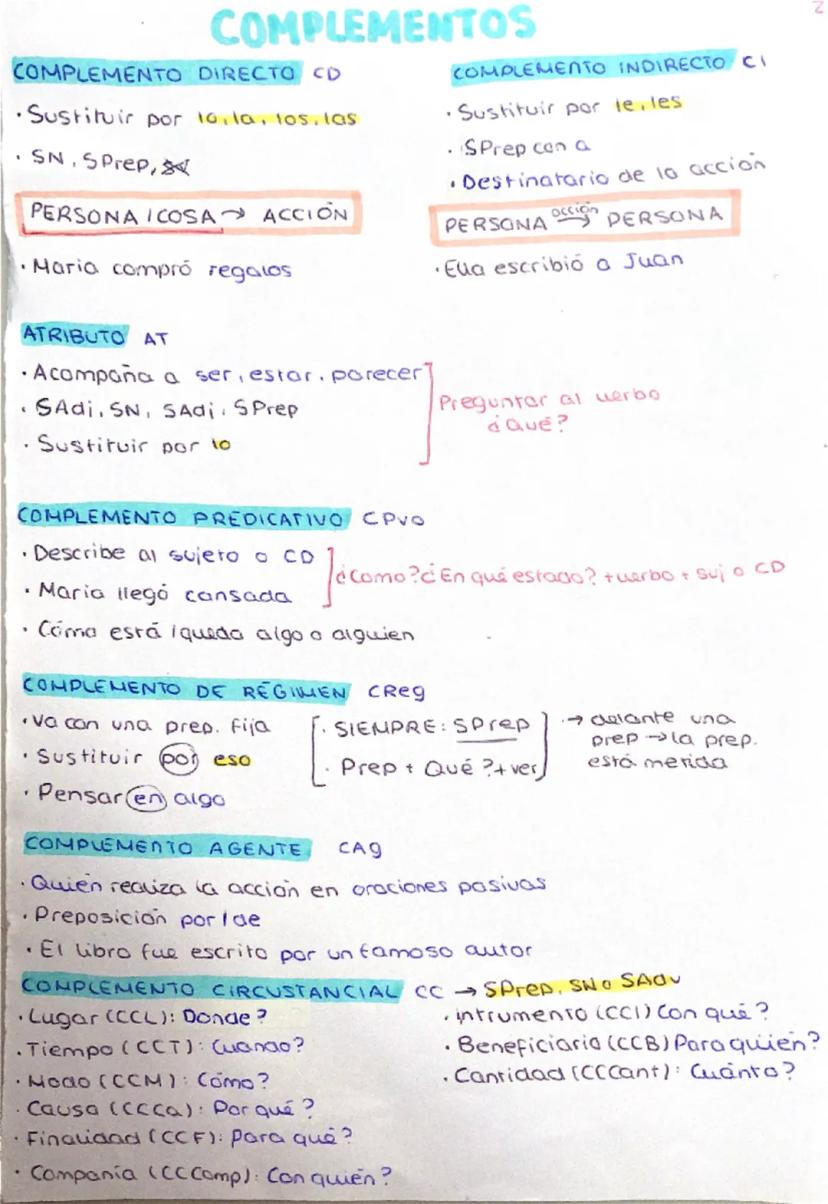 2
COMPLEMENTOS
COMPLEMENTO DIRECTO CD
· Sustituir por lo, la, los, las
· SN, SPrep,
PERSONA / COSA → ACCIÓN
· Maria compró regalos
COMPLEMENTO INDIRECTO CI
· Sustituir por le, les
· SPrep con a
· Destinatario de la acción
PERSONA acción → PERSONA
· Ella escribió a Juan
ATRIBUTO AT
· Acompaña a ser, estar, parecer
· SAdj, SN, SAdj, SPrep
· Sustituir por lo
Preguntar al verbo
¿Qué?
COMPLEMENTO PREDICATIVO CPVO
· Describe al sujeto o CD
· Maria llegó cansada
· Cómo está / queda algo o alguien
¿Como? ¿En qué estado? + verbo + suj o CD
COMPLEMENTO DE RÉGIMEN CReg
· Va con una prep. fija
· Sustituir por eso
· Pensar en algo
· SIEMPRE: SPrep
· Prep + Qué? + ver
→ delante una
prep → la prep.
está metida
COMPLEMENTO AGENTE CAg
· Quién realiza la acción en oraciones pasivas
· Preposición por / de
· El libro fue escrito por un famoso autor
COMPLEMENTO CIRCUSTANCIAL CC → SPrep, SN o SAdv
· Lugar (CCL): Donde?
· Tiempo (CCT): Cuando?
· Modo (CCM): Cómo?
· Causa (CCCa): Por qué?
· Finalidad (CCF): Para qué?
· Compañia (CCComp): Con quién?
· Intrumento (CCI) Con qué?
· Beneficiario (CCB) Para quien?
· Cantidad (CCCant): Cuánto?